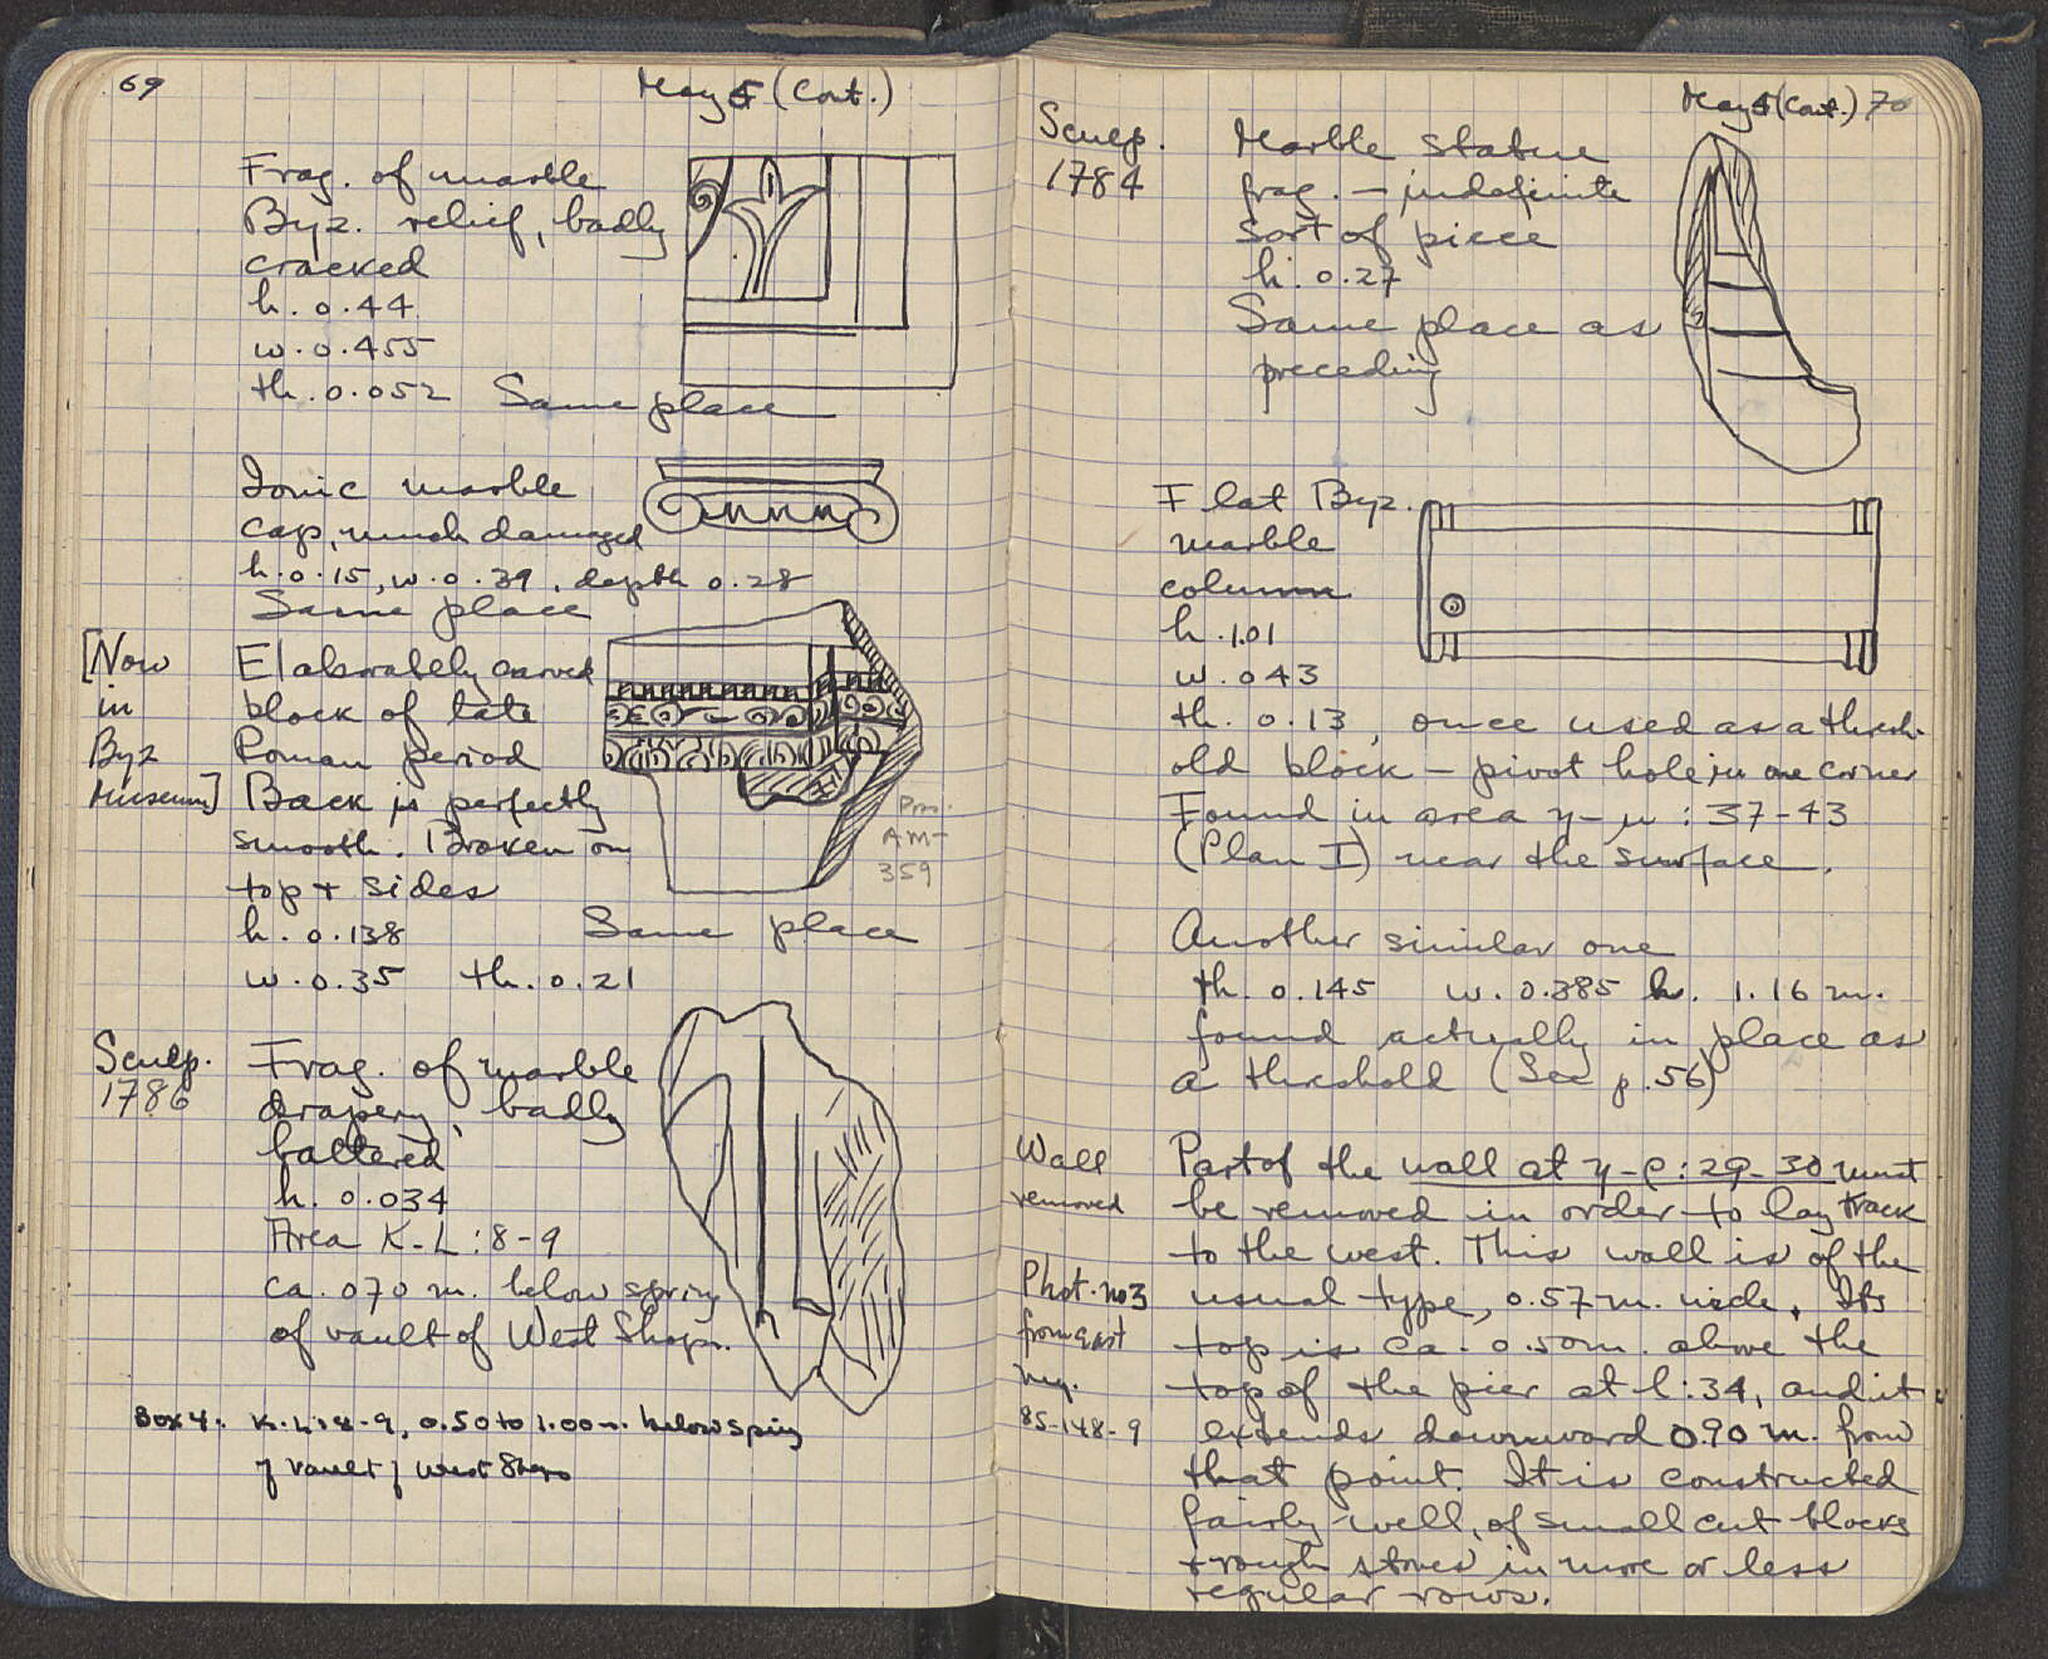 69
May 5 (Cont.)
Frag. of marble
Byz. relief, badly
cracked
h. 0.44
w. 0.455
th. 0.052 Same place
Ionic marble
cap, much damaged
h. 0.15, w. 0.39, depth 0.28
Same place
[Now
in
Byz
Museum]
Elaborately carved
block of late
Roman period
Back is perfectly
smooth. Broken on
top + sides
h. 0.138 Same place
w. 0.35 th. 0.21
AM-
359
Sculp.
1786
Frag. of marble
drapery, badly
battered
h. 0.034
Area K-L:8-9
ca. 070 m. below spring
of vault of West Shops.
Box 4: K-L:8-9, 0.50 to 1.00 m. below spring
of vault of West Shops
May (Cont.) 70
Sculp.
1784
Marble statue
frag. — indefinite
sort of piece
h. 0.27
Same place as
preceding
Flat Byz.
marble
column
h. 1.01
w. 043
th. 0.13, once used as a thresh-
old block — pivot hole in one corner
Found in area η-μ:37-43
(Plan I) near the surface.
Another similar one
th. 0.145 w. 0.385 h. 1.16 m.
found actually in place as
a threshold (See p. 56)
Wall
removed
Phot. no 3
from east
Neg.
85-148-9
Part of the wall at η-ρ:29-30 must
be removed in order to lay track
to the west. This wall is of the
usual type, 0.57 m. wide. Its
top is ca. 0.50 m. above the
top of the pier at ι:34, and it
extends downward 0.90 m. from
that point. It is constructed
fairly well, of small cut blocks
+ rough stones in more or less
regular rows.